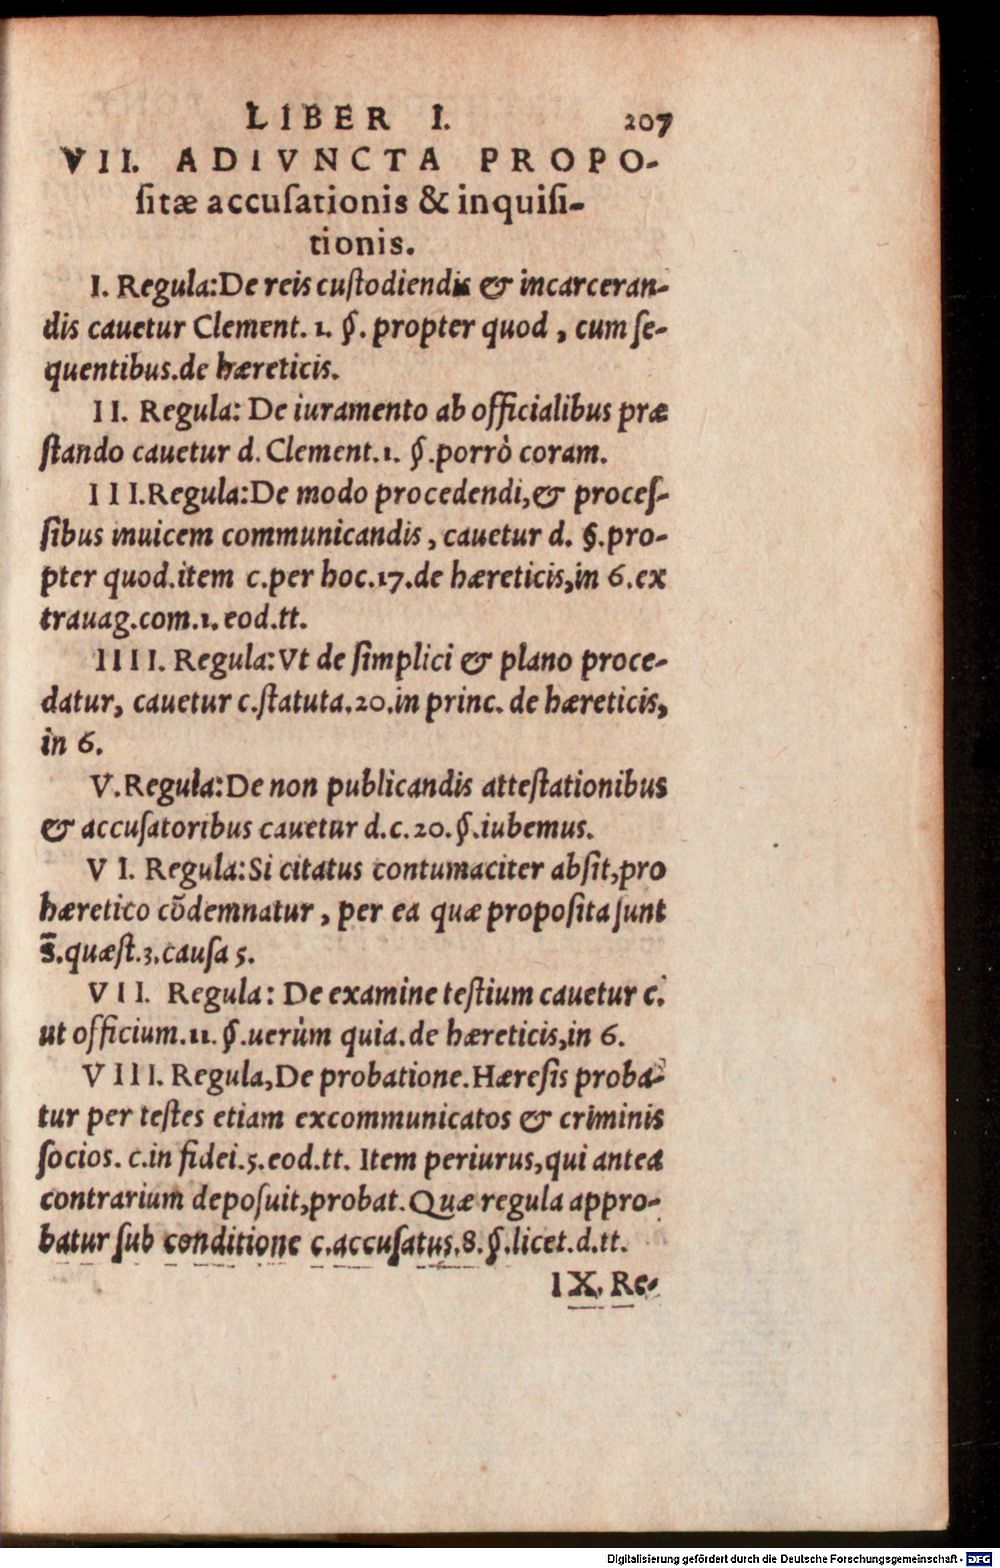 LIBER I. 207
VII. ADIVNCTA PROPO-
ſitæ accuſationis & inquiſi-
tionis.
I. Regula: De reis cuſtodiendis & incarceran-
dis cauetur Clement. 1. §. propter quod, cum ſe-
quentibus. de hæreticis.
II. Regula: De iuramento ab officialibus præ
ſtando cauetur d. Clement. 1. §. porrò coram.
III. Regula: De modo procedendi, & proceſ-
ſibus inuicem communicandis, cauetur d. §. pro-
pter quod. item c. per hoc. 17. de hæreticis, in 6. ex
trauag. com. 1. eod. tt.
IIII. Regula: Vt de ſimplici & plano proce-
datur, cauetur c. ſtatuta. 20. in princ. de hæreticis,
in 6.
V. Regula: De non publicandis atteſtationibus
& accuſatoribus cauetur d. c. 20. §. iubemus.
VI. Regula: Si citatus contumaciter abſit, pro
hæretico cōdemnatur, per ea quæ propoſita ſunt
s̄. quæſt. 3. cauſa 5.
VII. Regula: De examine teſtium cauetur c.
ut officium. 11. §. uerùm quia. de hæreticis, in 6.
VIII. Regula, De probatione. Hæreſis proba-
tur per teſtes etiam excommunicatos & criminis
ſocios. c. in fidei. 5. eod. tt. Item periurus, qui antea
contrarium depoſuit, probat. Quæ regula appro-
batur ſub conditione c. accuſatus. 8. §. licet. d. tt.
IX. Re-
Digitalisierung gefördert durch die Deutsche Forschungsgemeinschaft - DFG